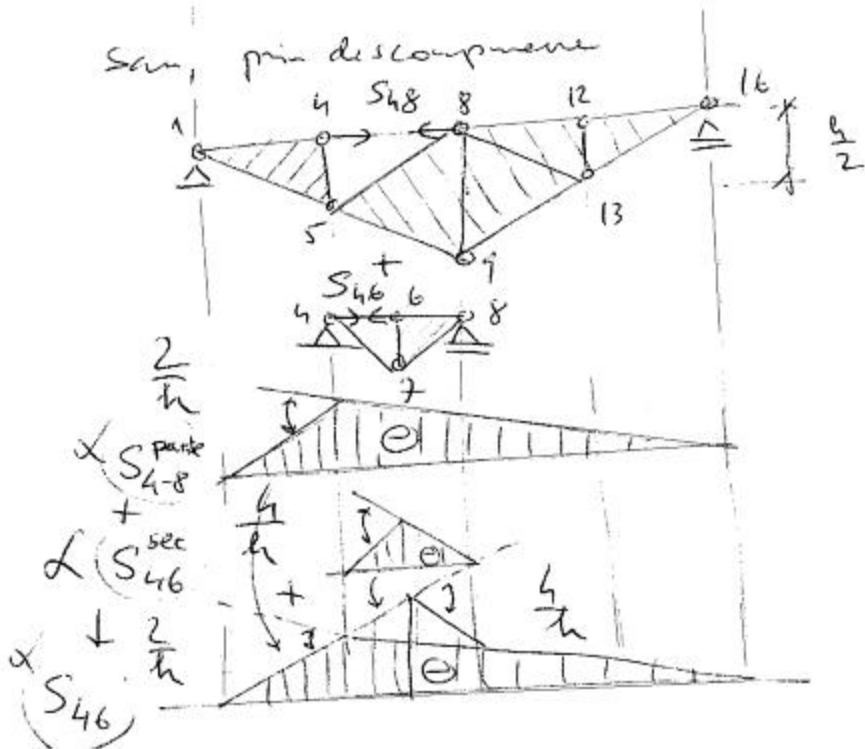 Sau, prin descompunere
1 4 S48 8 12 16
h/2
5 13
9
+
S46
4 6 8
7
2/h
α S4-8 parte
⊖
+
4/h
α S46 sec
⊖
+
4/h
↓ 2/h
α S46
⊖